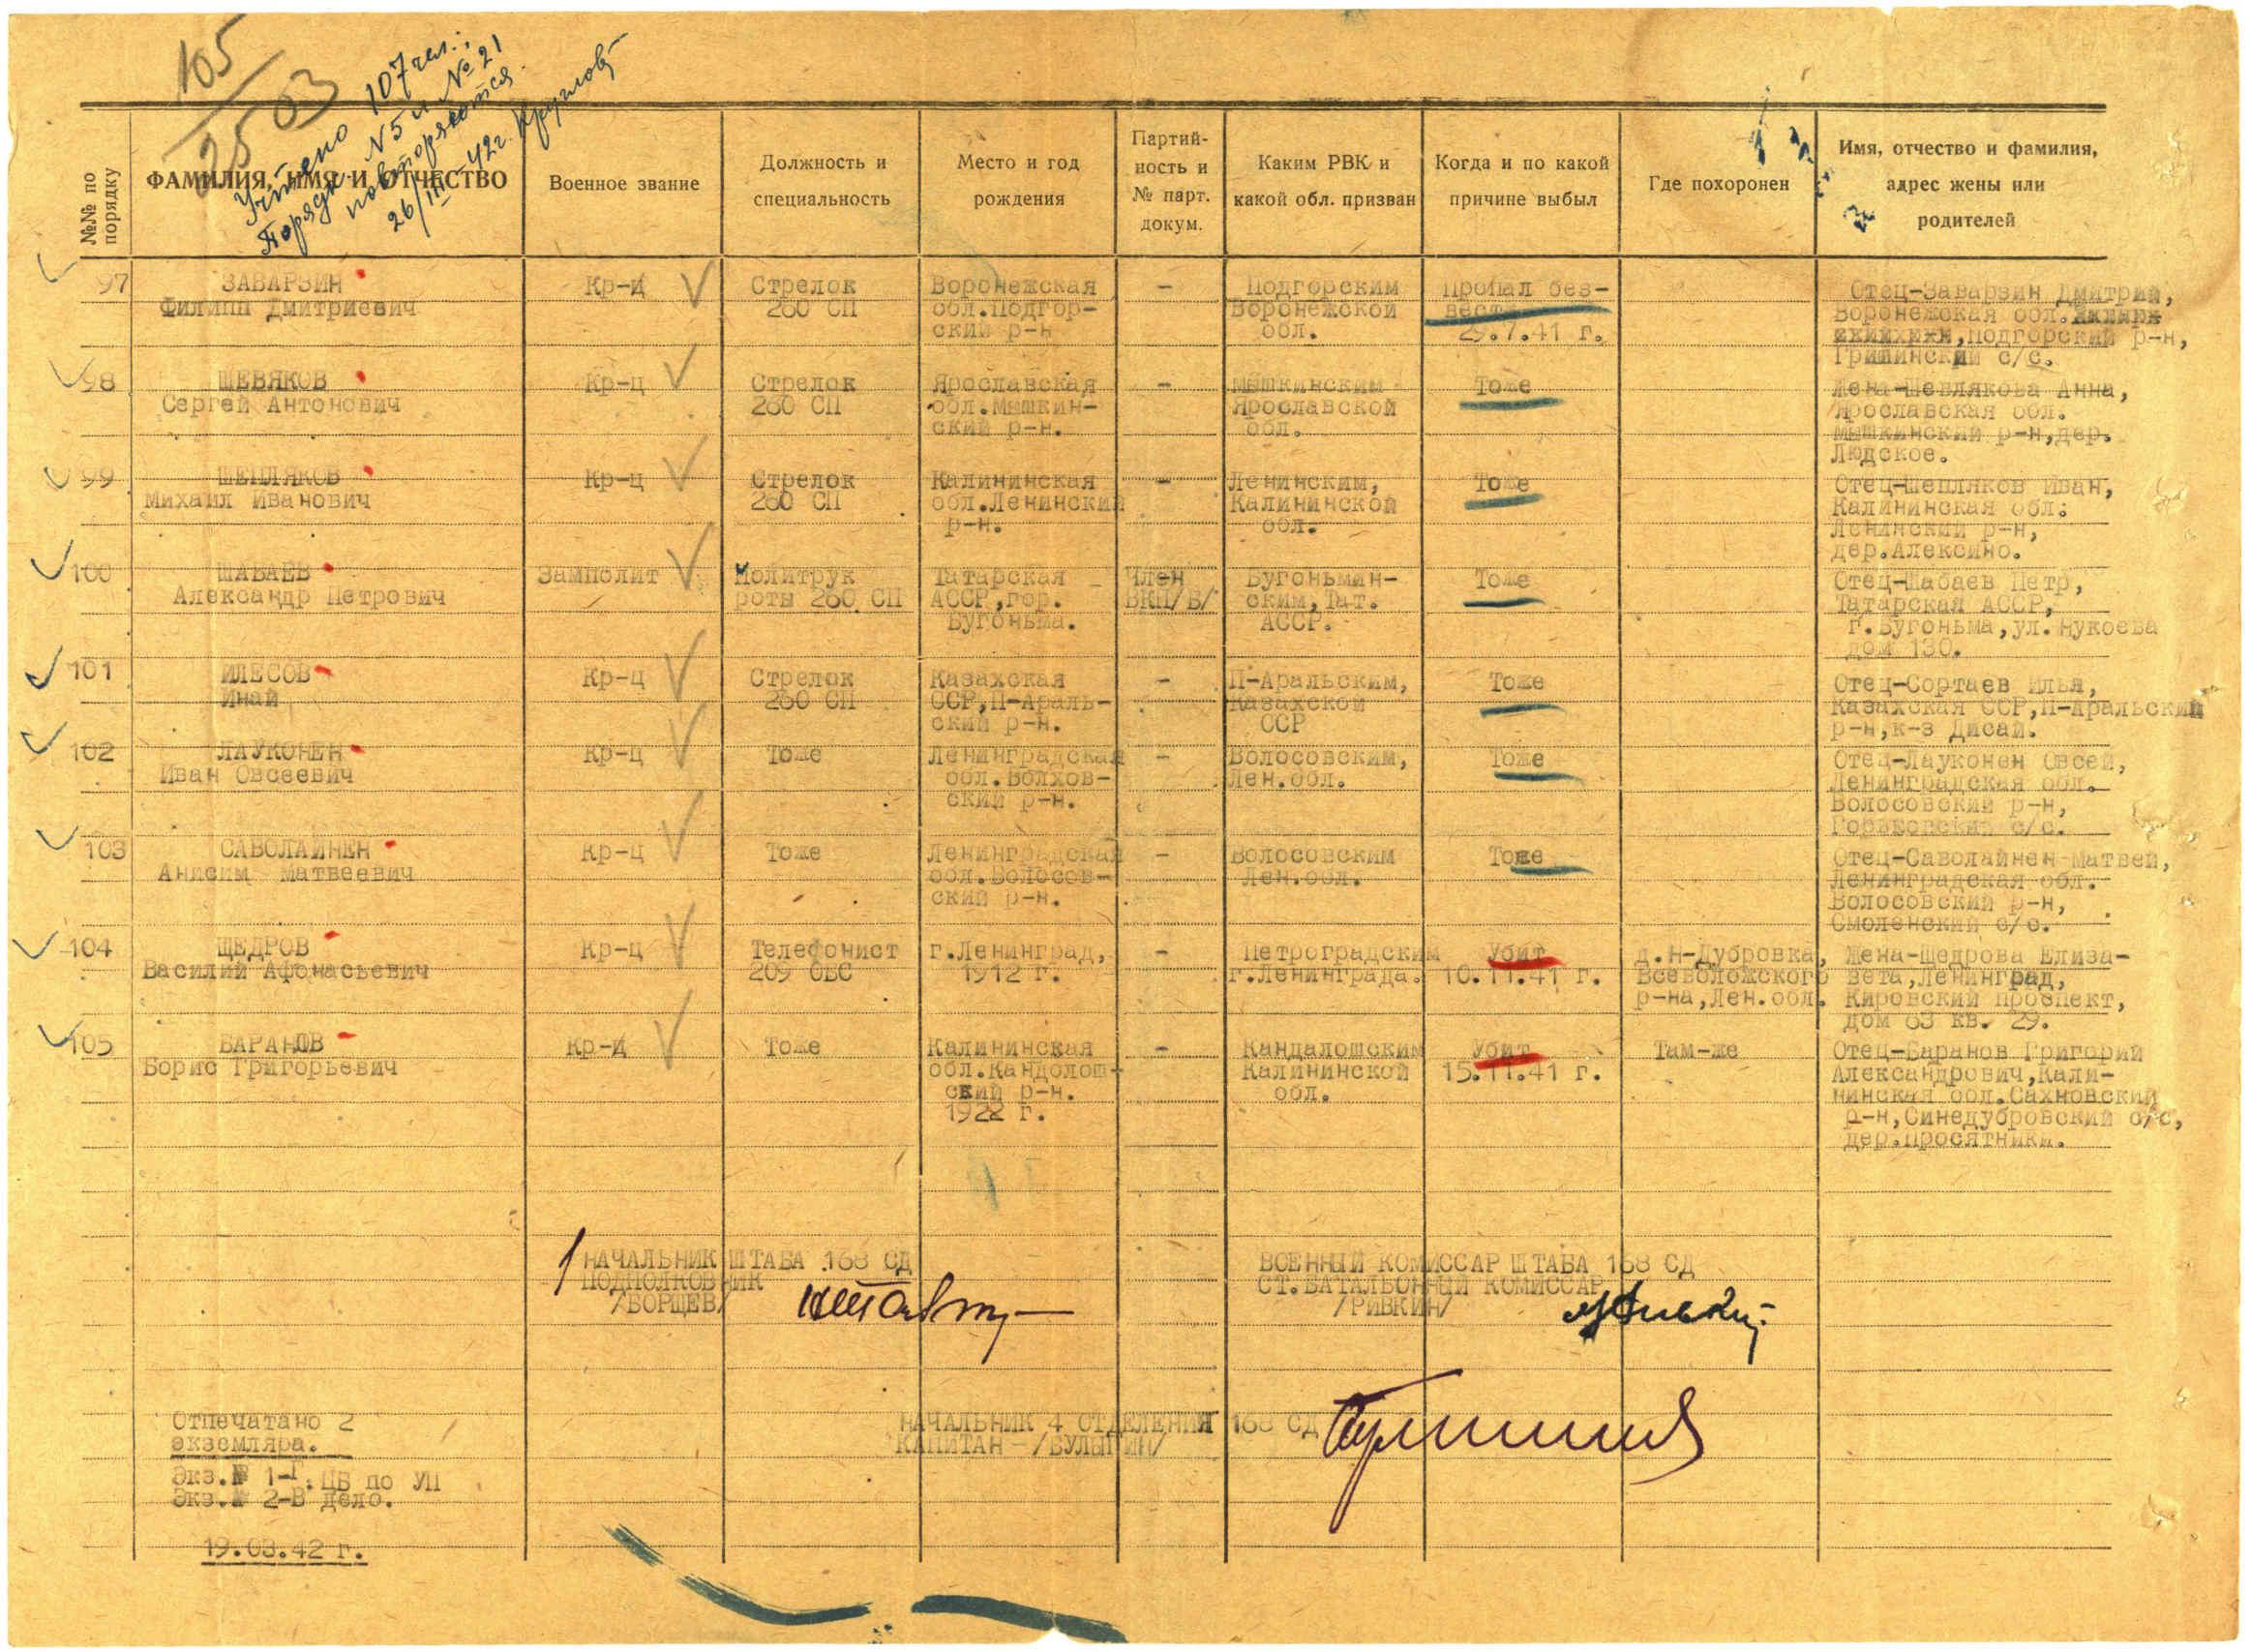 105
25 03
Учтено 107 чел.;
Порядк. №5 и №21
повторяются.
26/III-42г. Круглов
№№ по порядку
ФАМИЛИЯ, ИМЯ И ОТЧЕСТВО
Военное звание
Должность и
специальность
Место и год
рождения
Партий-
ность и
№ парт.
докум.
Каким РВК и
какой обл. призван
Когда и по какой
причине выбыл
Где похоронен
Имя, отчество и фамилия,
адрес жены или
родителей
97
ЗАВАРЗИН
Филипп Дмитриевич
Кр-ц
Стрелок
260 СП
Воронежская
обл.Подгор-
ский р-н
-
Подгорским
Воронежской
обл.
Пропал без-
вести
29.7.41 г.
Отец-Заварзин Дмитрий,
Воронежская обл.
,Подгорский р-н,
Гришинский с/с.
98
ШЕВЯКОВ
Сергей Антонович
Кр-ц
Стрелок
260 СП
Ярославская
обл.Мышкин-
ский р-н.
-
Мышкинским
Ярославской
обл.
Тоже
Жена-Шевлякова Анна,
Ярославская обл.
Мышкинский р-н,дер.
Людское.
99
ШЕПЛЯКОВ
Михаил Иванович
Кр-ц
Стрелок
260 СП
Калининская
обл.Ленинский
р-н.
-
Ленинским,
Калининской
обл.
Тоже
Отец-Шепляков Иван,
Калининская обл.
Ленинский р-н,
дер.Алексино.
100
ШАБАЕВ
Александр Петрович
Замполит
Политрук
роты 260 СП
Татарская
АССР,гор.
Бугоньма.
Член
ВКП/б/
Бугоньмин-
ским,Тат.
АССР.
Тоже
Отец-Шабаев Петр,
Татарская АССР,
г.Бугоньма,ул.Чукоева
дом 130.
101
ИЛЕСОВ
Инай
Кр-ц
Стрелок
260 СП
Казахская
ССР,П-Араль-
ский р-н.
-
П-Аральским,
Казахской
ССР
Тоже
Отец-Сортаев Илья,
Казахская ССР,П-Аральский
р-н,к-з Дисай.
102
ЛАУКОНЕН
Иван Овсеевич
Кр-ц
Тоже
Ленинградская
обл.Волхов-
ский р-н.
-
Волосовским,
Лен.обл.
Тоже
Отец-Лауконен Овсей,
Ленинградская обл.
Волосовский р-н,
Горьковский с/с.
103
САВОЛАЙНЕН
Анисим Матвеевич
Кр-ц
Тоже
Ленинградская
обл.Волосов-
ский р-н.
-
Волосовским
Лен.обл.
Тоже
Отец-Саволайнен Матвей,
Ленинградская обл.
Волосовский р-н,
Смоленский с/с.
104
ЩЕДРОВ
Василий Афонасьевич
Кр-ц
Телефонист
209 ОБС
г.Ленинград,
1912 г.
-
Петроградским
г.Ленинграда.
Убит
10.11.41 г.
д.Н-Дубровка,
Всеволожского
р-на,Лен.обл.
Жена-Щедрова Елиза-
вета,Ленинград,
Кировский проспект,
дом 63 кв. 29.
105
БАРАНОВ
Борис Григорьевич
Кр-ц
Тоже
Калининская
обл.Кандолош-
ский р-н.
1922 г.
-
Кандалошским
Калининской
обл.
Убит
15.11.41 г.
Там-же
Отец-Баранов Григорий
Александрович,Кали-
нинская обл.Сахновский
р-н,Синедубровский с/с,
дер.Просятники.
НАЧАЛЬНИК ШТАБА 168 СД
ПОДПОЛКОВНИК
/БОРЩЕВ/
ВОЕННЫЙ КОМИССАР ШТАБА 168 СД
СТ.БАТАЛЬОННЫЙ КОМИССАР
/РИВКИН/
НАЧАЛЬНИК 4 ОТДЕЛЕНИЯ 168 СД
КАПИТАН-/БУЛЫГИН/
Отпечатано 2
экземляра.
Экз.№ 1-Г.ЦБ по УП
Экз.№ 2-В дело.
19.03.42 г.